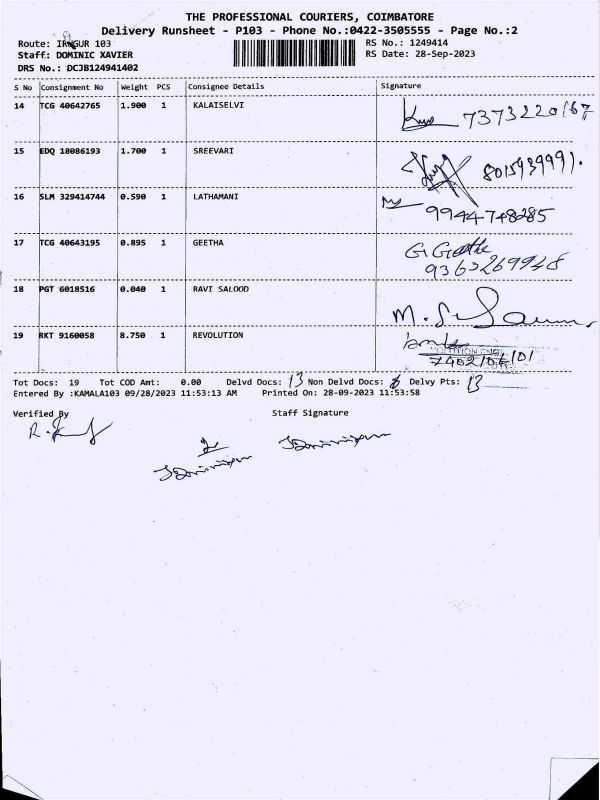 THE PROFESSIONAL COURIERS, COIMBATORE
Delivery Runsheet - P103 - Phone No.:0422-3505555 - Page No.:2
Route: IRUGUR 103 RS No.: 1249414
Staff: DOMINIC XAVIER RS Date: 28-Sep-2023
DRS No.: DCJB124941402
S No Consignment No Weight PCS Consignee Details Signature
14 TCG 40642765 1.900 1 KALAISELVI 7373220167
15 EDQ 18086193 1.700 1 SREEVARI 8015939991.
16 SLM 329414744 0.590 1 LATHAMANI 9944748285
17 TCG 40643195 0.895 1 GEETHA G. Geetha
9363269948
18 PGT 6018516 0.040 1 RAVI SALOOD
19 RKT 9160058 8.750 1 REVOLUTION
Tot Docs: 19 Tot COD Amt: 0.00 Delvd Docs: 13 Non Delvd Docs: 6 Delvy Pts: 13
Entered By :KAMALA103 09/28/2023 11:53:13 AM Printed On: 28-09-2023 11:53:58
Verified By Staff Signature